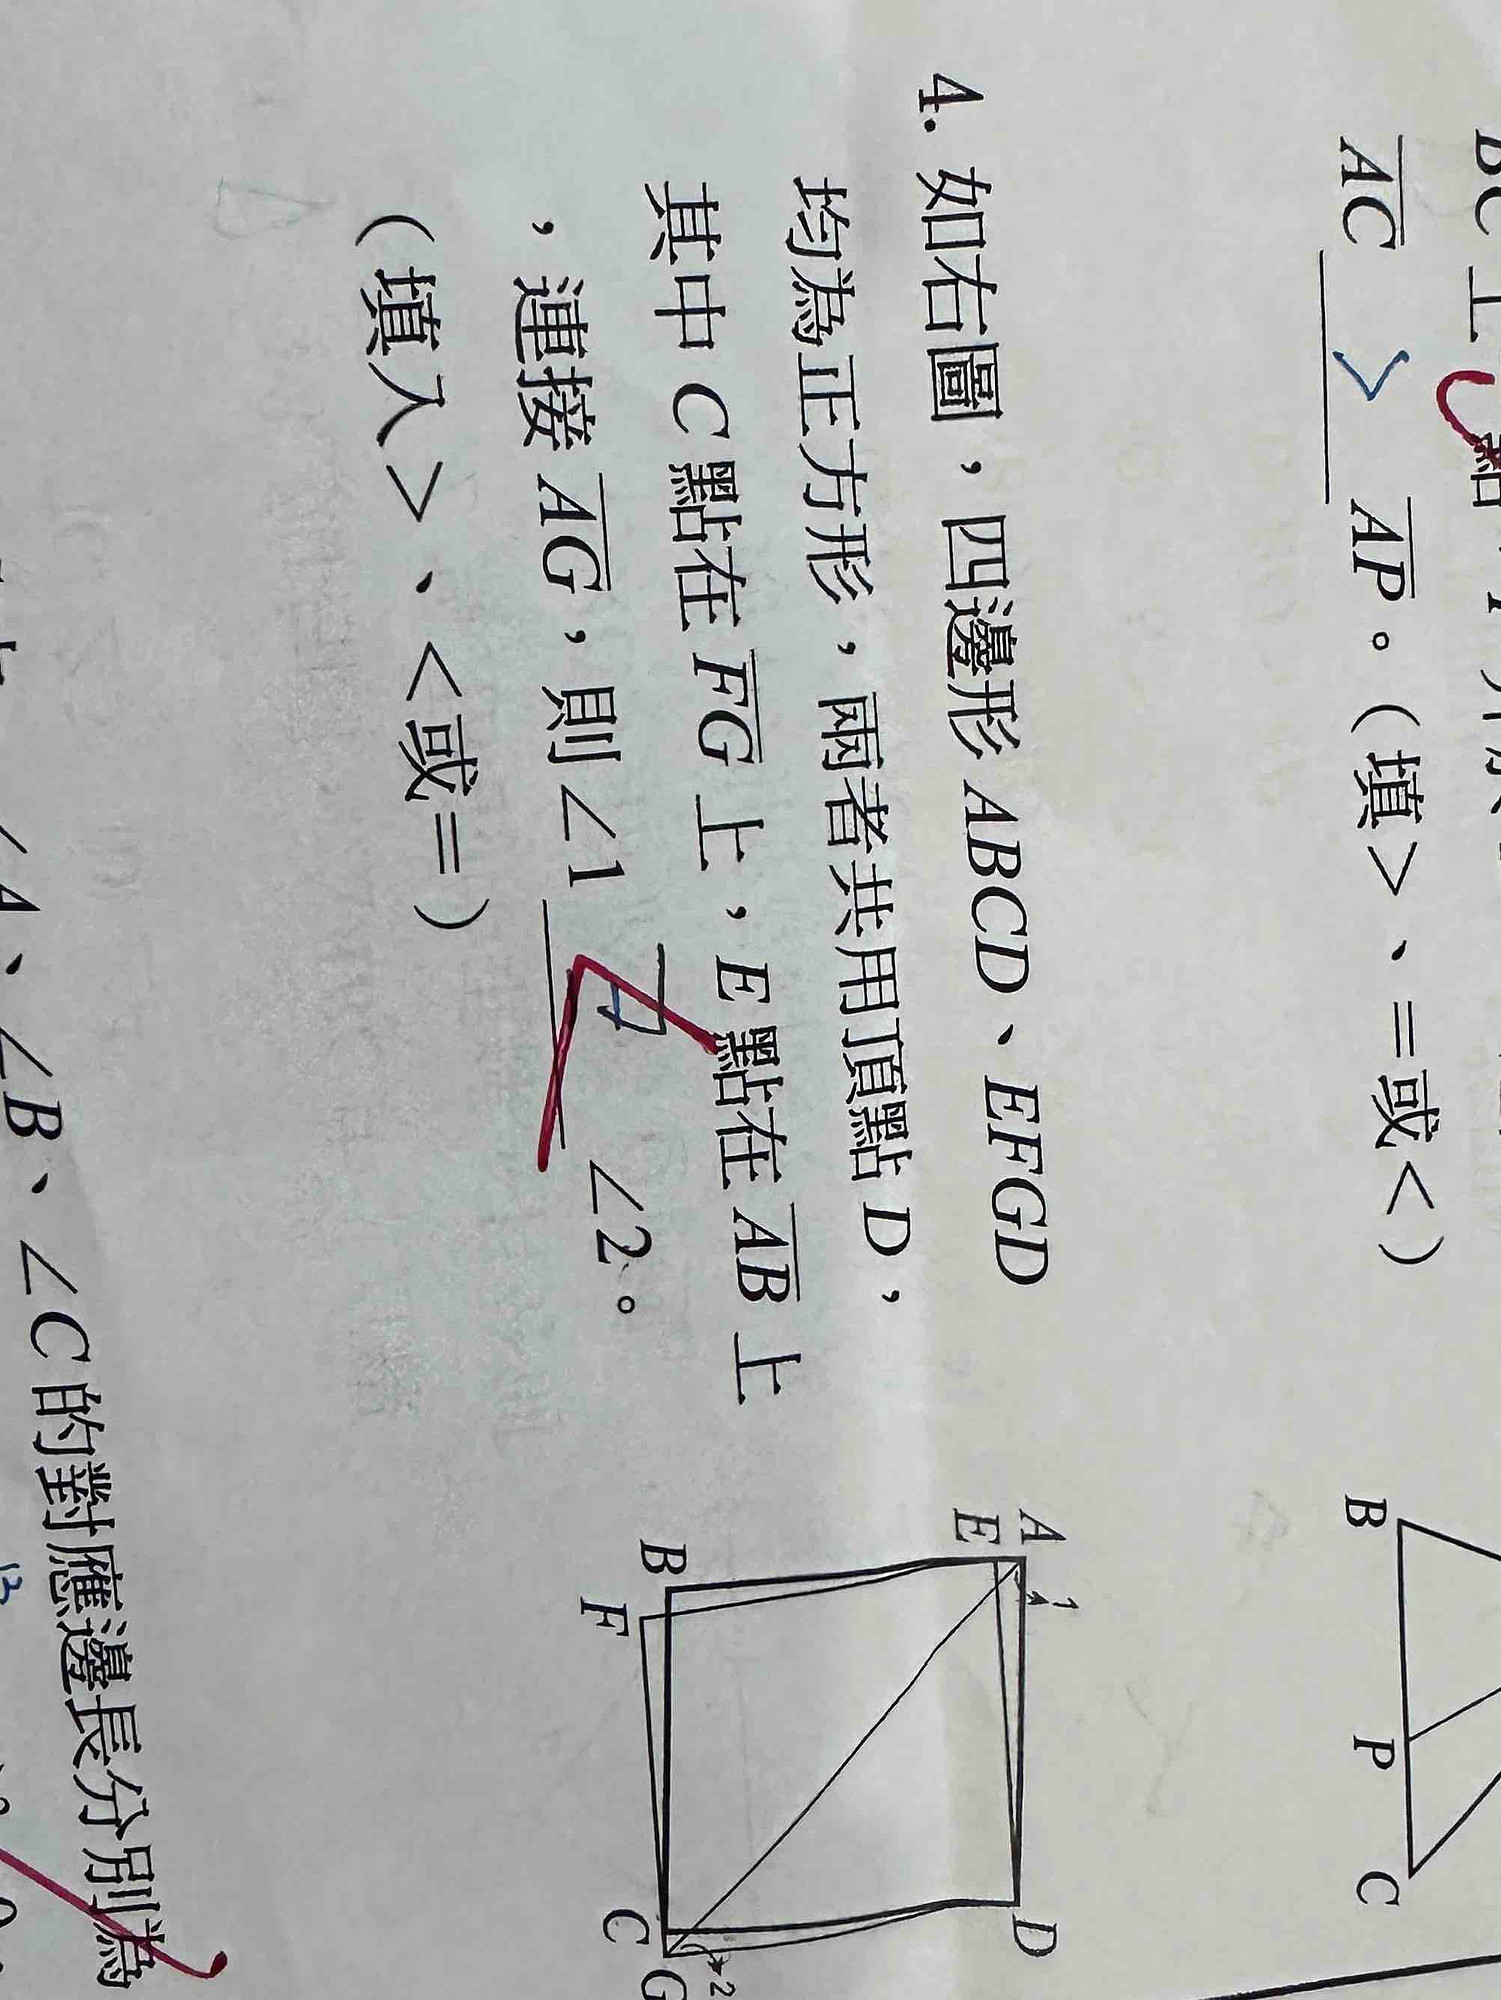 AC > AP。(填>、=或<)
B
P
C
4. 如右圖，四邊形 ABCD、EFGD
均為正方形，兩者共用頂點 D，
其中 C 點在 FG 上，E 點在 AB 上
，連接 AG，則 ∠1 ∠2。
(填入>、<或=)
A
1
D
E
B
F
C
G
2
∠A、∠B、∠C 的對應邊長分別為